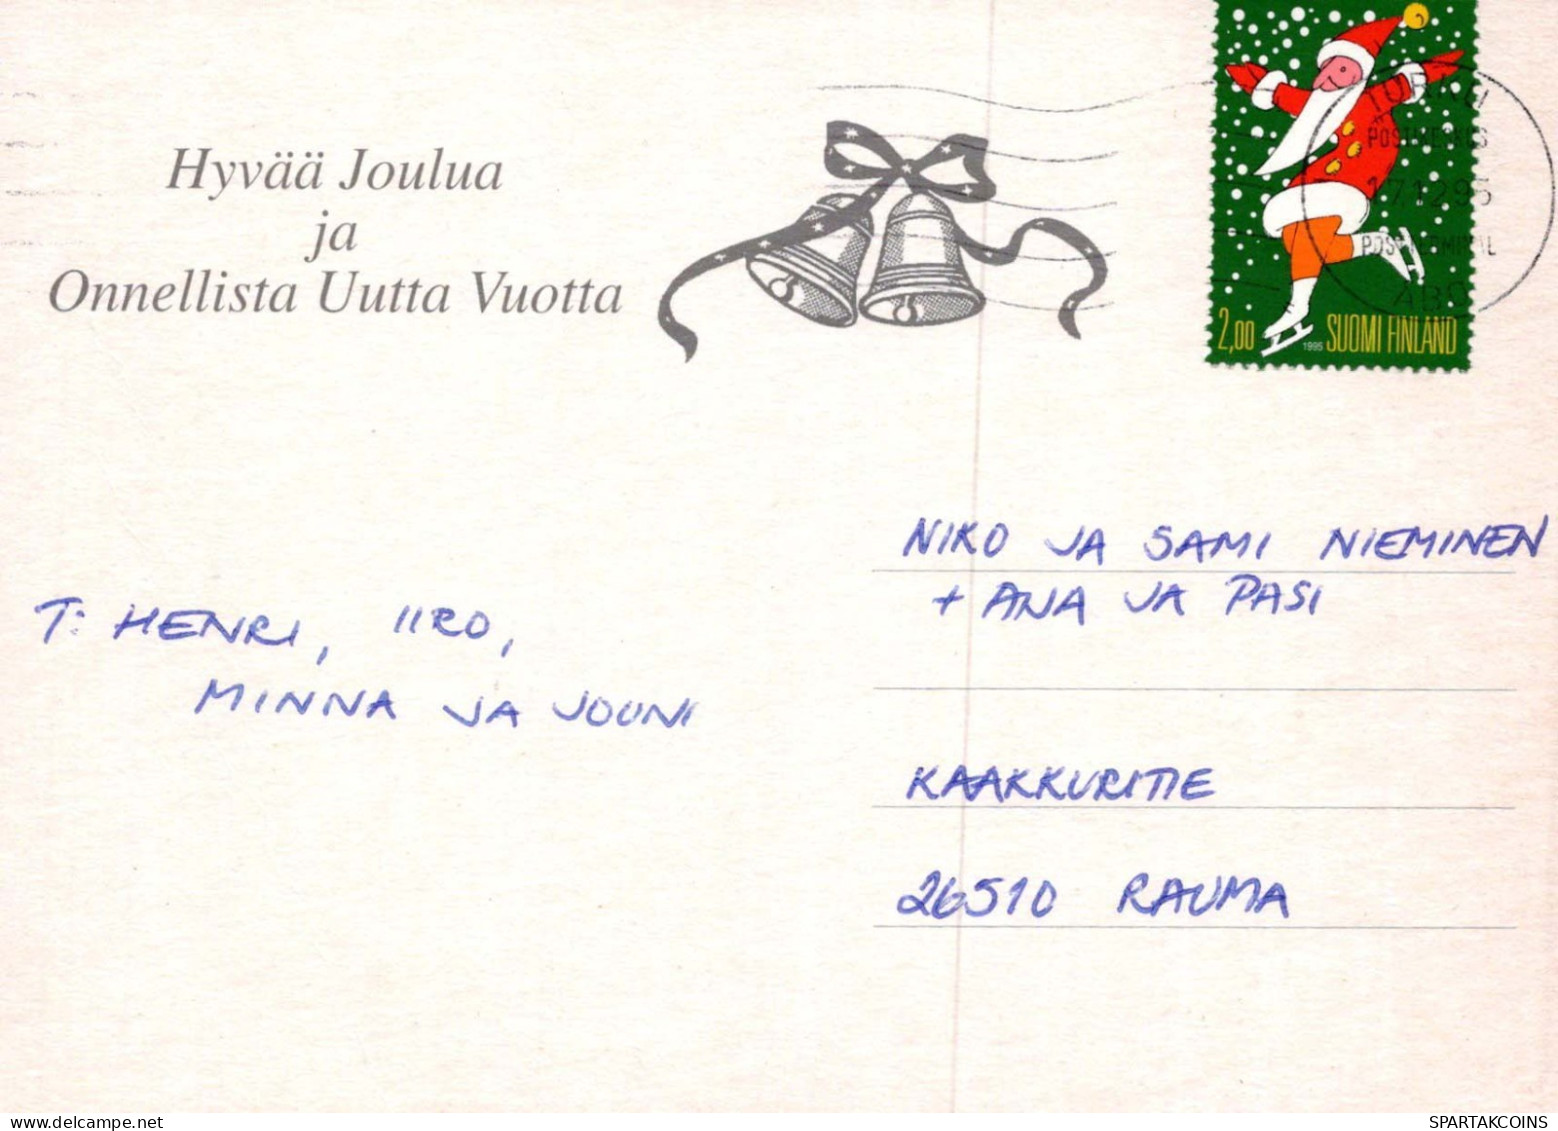 Hyvää Joulua
ja
Onnellista Uutta Vuotta
TURKU
POSTIKESKUS
17.12.95
POSTTERMINAL
ÅBO
2,00
1995 SUOMI FINLAND
NIKO JA SAMI NIEMINEN
+ ANJA JA PASI
T: HENRI, IIRO,
MINNA JA JOUNI
KAAKKURITIE
26510 RAUMA
delcampe.net
SPARTAKCOINS